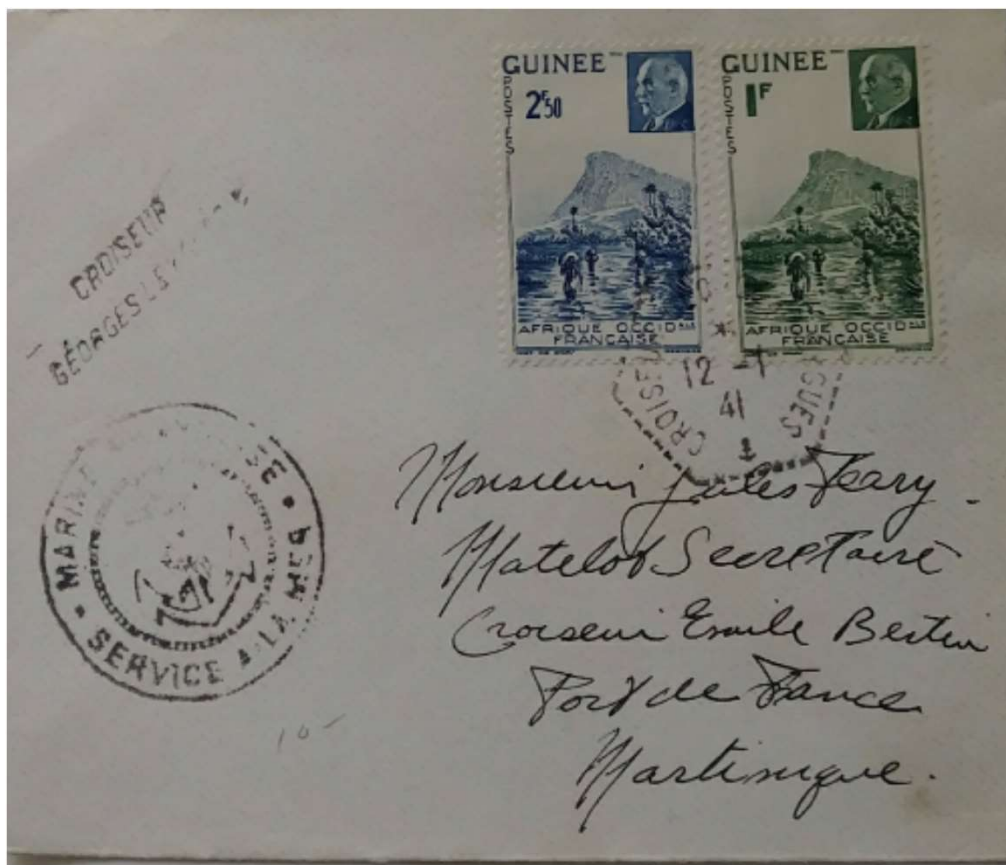 GUINEE
POSTES
2F50
AFRIQUE OCCID ALE
FRANÇAISE
GUINEE
POSTES
1F
AFRIQUE OCCID ALE
FRANÇAISE
CROISEUR
GÉORGES
CROISEU
12 -1
41
GUES
MARINE
SERVICE A LA MER
Monsieur Jules
Matelot Secretaire
Croiseur Emile Bertin
Fort de France
Martinique.
10-